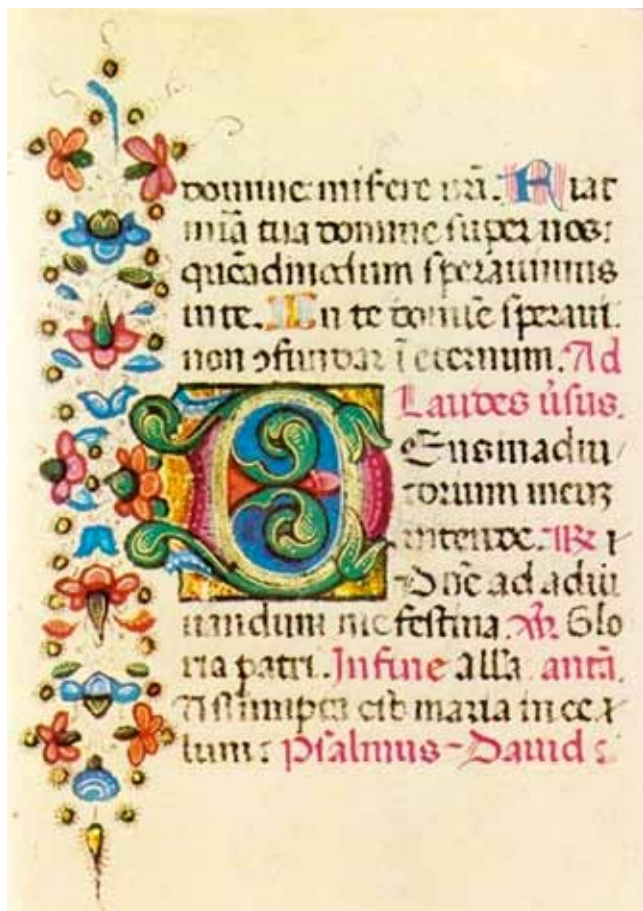 domine misere nrī. Fiat
mīa tua domine super nos:
quēadmodum sperauimus
in te. In te domīe speraui:
non ɔfundar ī eternum. Ad
Laudes ūsus.
Deus in adiu/
torium meuʒ
intende. ℞
Dn̄e ad adiu
uandum me festina. ℣. Glo
ria patri. In fine alla antā.
Assumpta est maria in ce
lum: Psalmus Dauid: